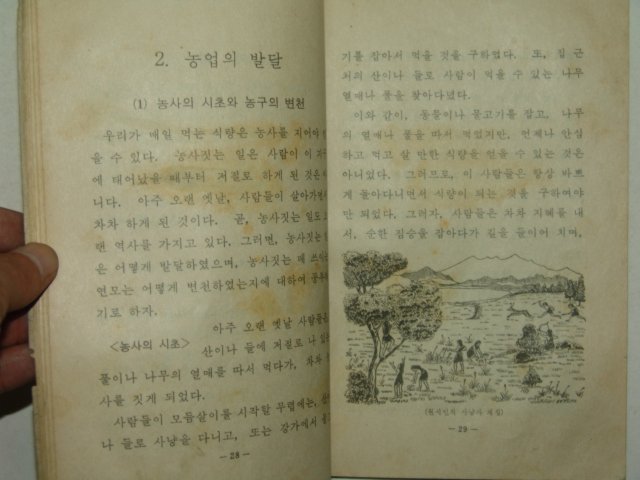 2. 농업의 발달
(1) 농사의 시초와 농구의 변천
우리가 매일 먹는 식량은 농사를 지어야
을 수 있다. 농사짓는 일은 사람이 이
에 태어났을 때부터 저절로 하게 된 것은
니다. 아주 오랜 옛날, 사람들이 살아가
차차 하게 된 것이다. 곧, 농사짓는 일도
랜 역사를 가지고 있다. 그러면, 농사짓는
은 어떻게 발달하였으며, 농사짓는 데 쓰이는
연모는 어떻게 변천하였는지에 대하여
기로 하자.
<농사의 시초> 아주 오랜 옛날 사람들은
산이나 들에 저절로 나
풀이나 나무의 열매를 따서 먹다가, 차차
사를 짓게 되었다.
사람들이 모둠살이를 시작할 무렵에는,
나 들로 사냥을 다니고, 또는 강가에서
— 28 —
기를 잡아서 먹을 것을 구하였다. 또, 집 근
처의 산이나 들로 사람이 먹을 수 있는 나무
열매나 풀을 찾아다녔다.
이와 같이, 동물이나 물고기를 잡고, 나무
의 열매나 풀을 따서 먹었지만, 언제나 안심
하고 먹고 살 만한 식량을 얻을 수 있는 것은
아니었다. 그러므로, 이 사람들은 항상 바쁘
게 돌아다니면서 식량이 되는 것을 구하여야
만 되었다. 그러자, 사람들은 차차 지혜를 내
서, 순한 짐승을 잡아다가 길을 들이어 치며,
(원시인의 사냥과 채집)
— 29 —